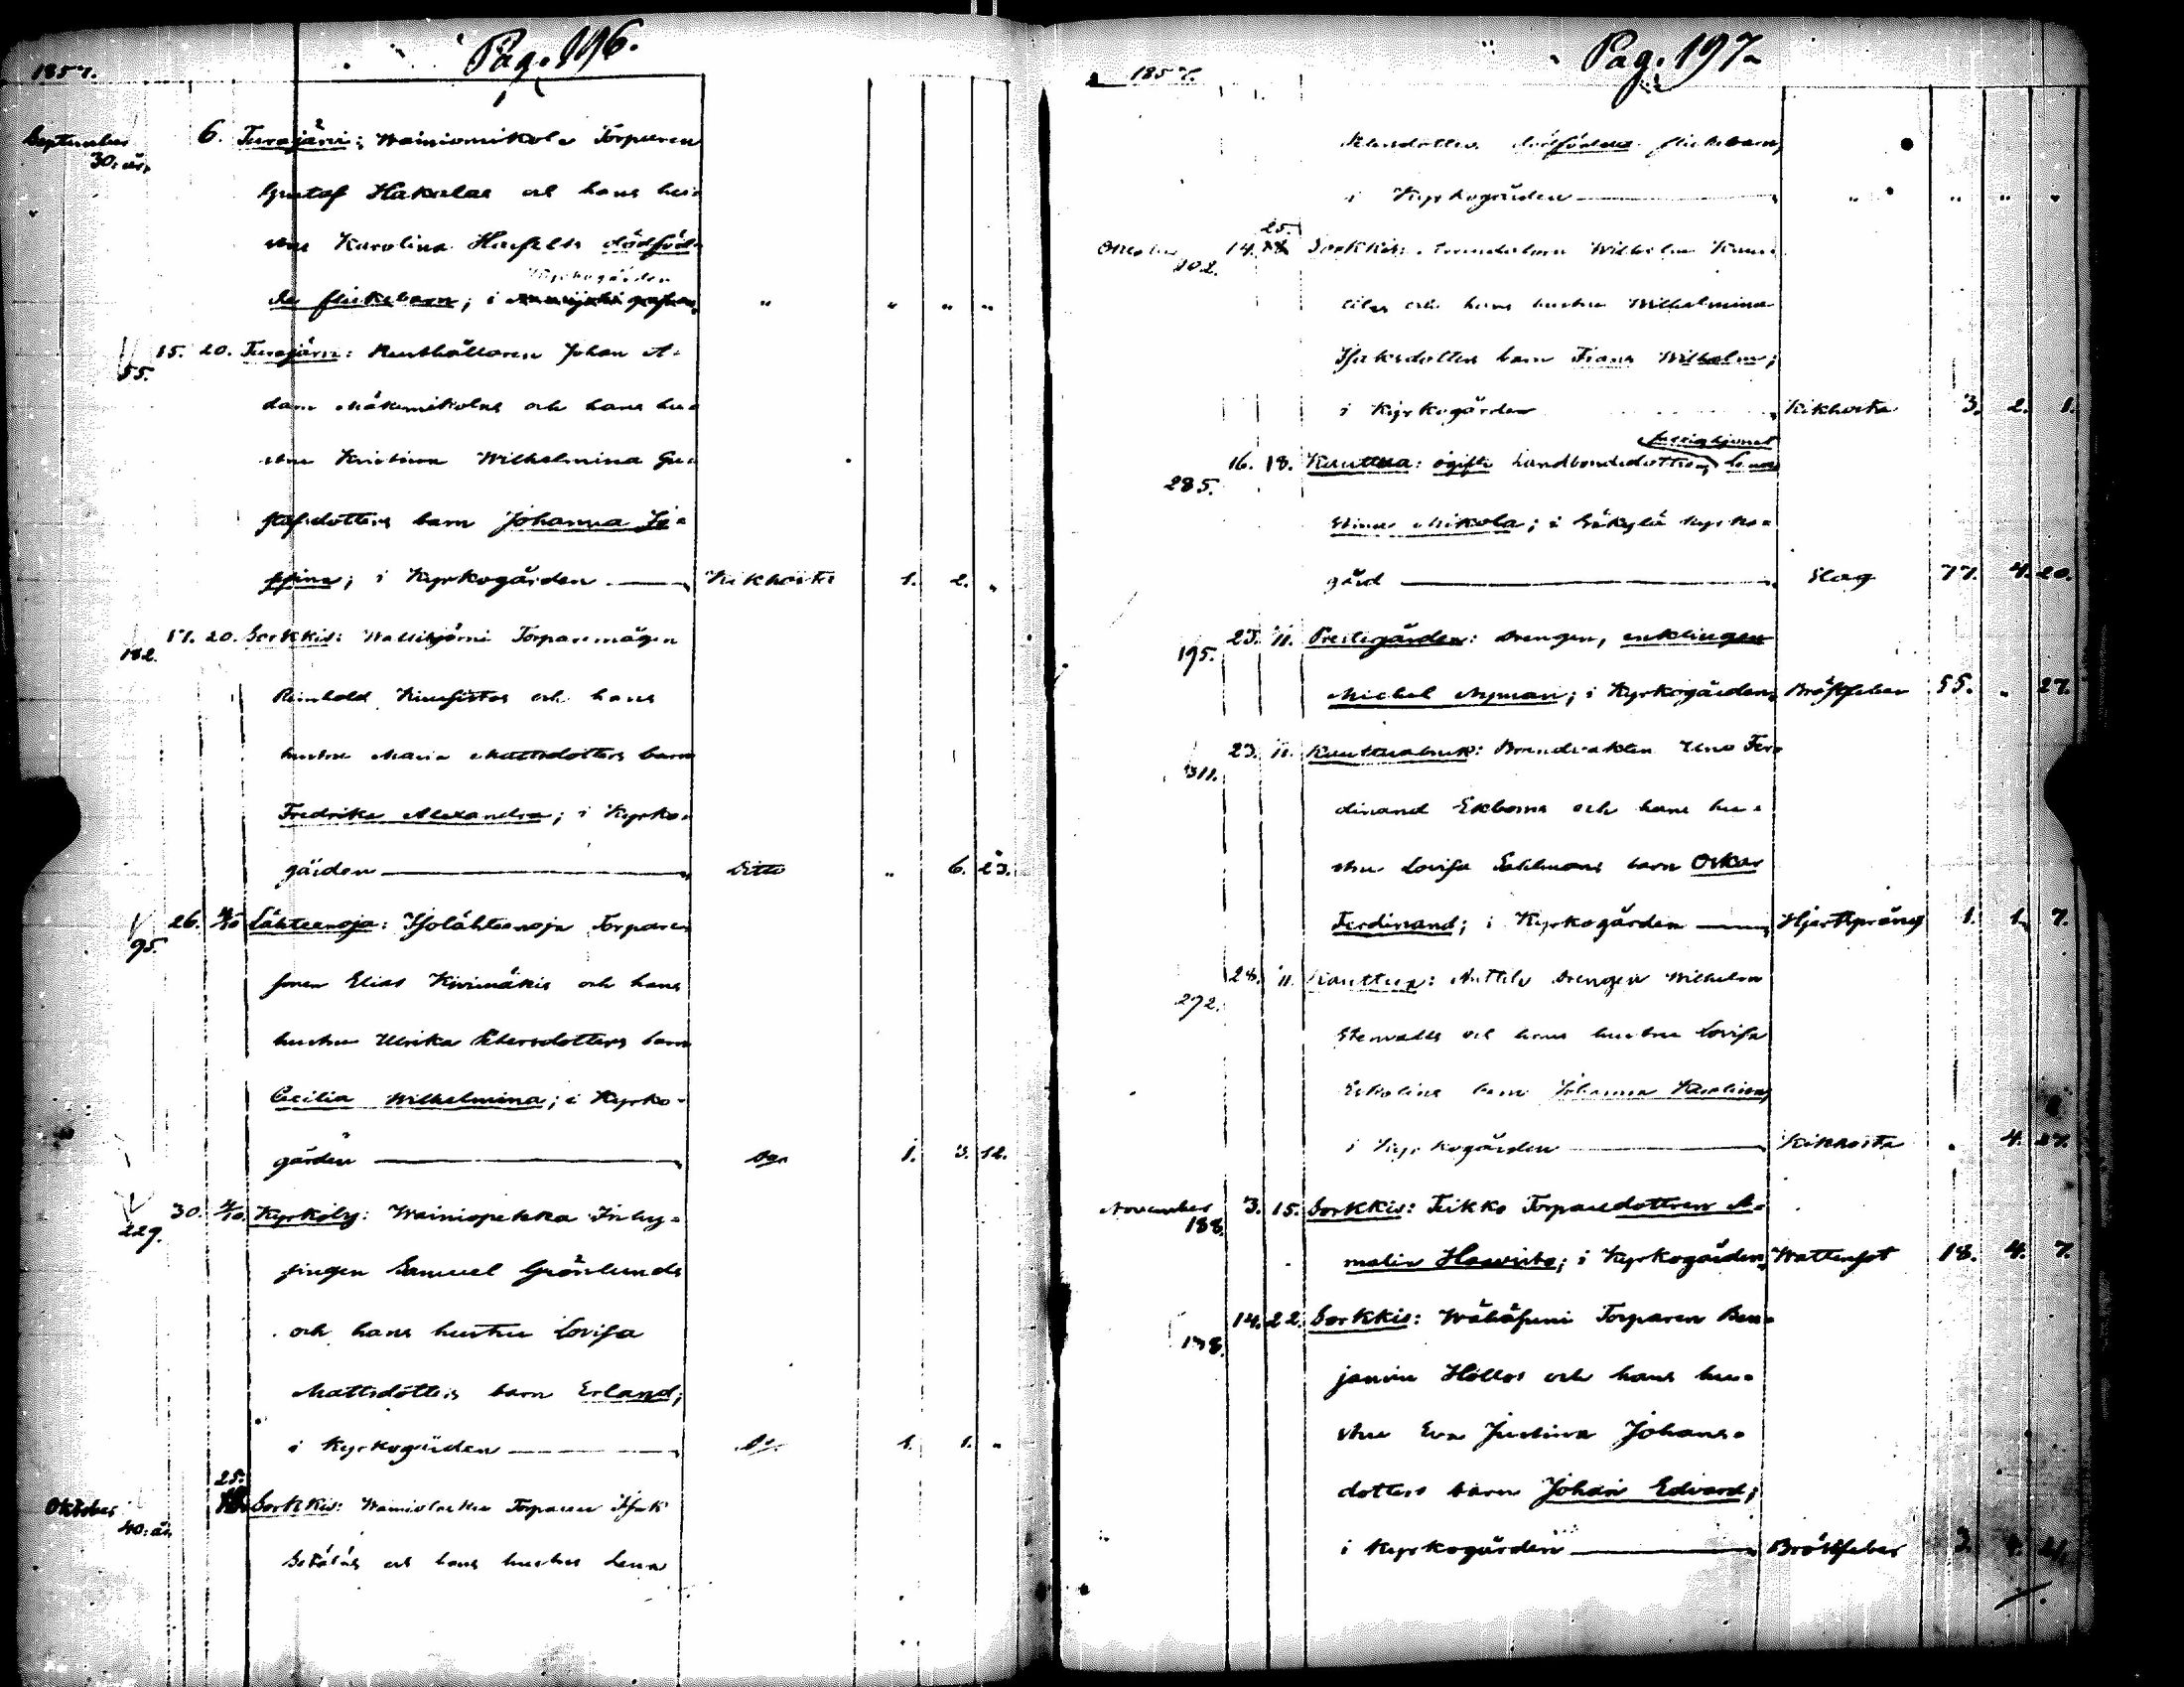 1857. Pag. 196.
September 6. Turajärvi: Wainiomikola Torparen
30. äs.
Gustaf Hakalas och hans hu-
stru Karolina Hafelts dödföd-
Kyrkogården
da flickebarn; i " " " "
15. 20. Turajärvi: Rusthållaren Johan A-
55.
dam Mäkimikolas och hans hu-
stru Kristina Wilhelmina Gu-
stafsdotters barn Johanna Jo-
sefina; i Kyrkogården Kikhosta 1. 2. "
17. 20. Sorkkis: Torparemågen
182.
Reinhold och hans
hustru Maria Mattsdotters barn
Fredrika Alexandra; i Kyrko-
gården Ditto " 6. 23.
26. 4/10 Lähteenoja: Isolähteenoja Torpare
95.
sonen Elias Kivimäkis och hans
hustru Ulrika barn
Cecilia Wilhelmina; i Kyrko-
gården Do 1. 3. 12.
30. 4/10 Kyrkoby: Wainiopekka Inhy-
229.
singen Samuel Grönlunds
och hans hustru Lovisa
Mattsdotters barn Erland;
i Kyrkogården Do 1. 1. "
25.
Oktober Sorkkis: Torparen Isak
40. äs.
och hans hustru Lena
1857. Pag. 197.
dödfödda flickebarn,
i Kyrkogården " " " "
25.
Oktober 14. Sorkkis: Wilhelm
202.
och hans hustru Wilhelmina
Isaksdotters barn Frans Wilhelm;
i Kyrkogården Kikhosta 3. 2. 1.
16. 18. Kauttua: ogifta Landbondedottren, Lena
285.
Stina Mikola; i Säkylä Kyrko-
gård Slag 77. 4. 20.
23. 11. Prestegården: Drengen, enklingen
195.
Michel Nyman; i Kyrkogården Bröstfeber 55. " 27.
23. 11. Kauttuabruk: Brandvakten Uno Fer-
311.
dinand Ekboms och hans hu-
stru Lovisa barn Oskar
Ferdinand; i Kyrkogården Hjertsprång 1. 1. 7.
28. 11. Kauttua: Anttila Drengen Wilhelm
272.
Stenvalls och hans hustru Lovisa
barn Johanna Karolina;
i Kyrkogården Kikhosta " 4. 27.
November 3. 15. Sorkkis: Teikko Torparedottren A-
188.
malia i Kyrkogården Wattensot 18. 4. 7.
14. 22. Sorkkis: Torparen Ben-
jamin Hollos och hans hu-
stru Eva Justina Johans-
dotters barn Johan Edvard;
i Kyrkogården Bröstfeber